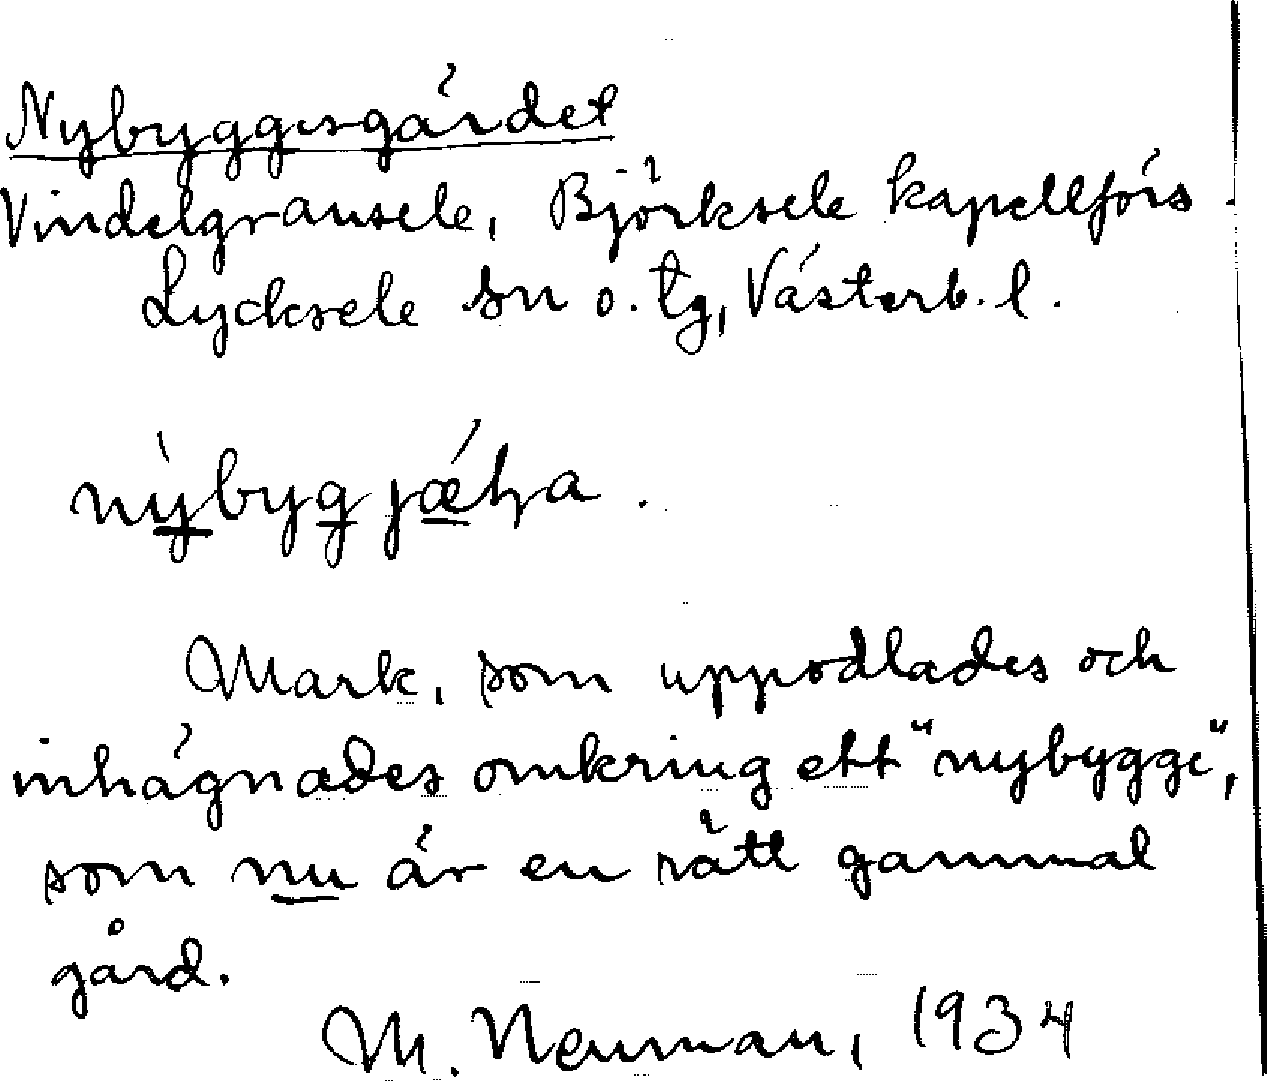 Nybyggesgärdet
Vindelgransele, Björksele kapellförs.
Lycksele sn o. tg, Västerb. l.
nỳbygjǽɫa.
Mark, som uppodlades och
inhägnades omkring ett "nybygge",
som nu är en rätt gammal
gård.
M. Neuman, 1934